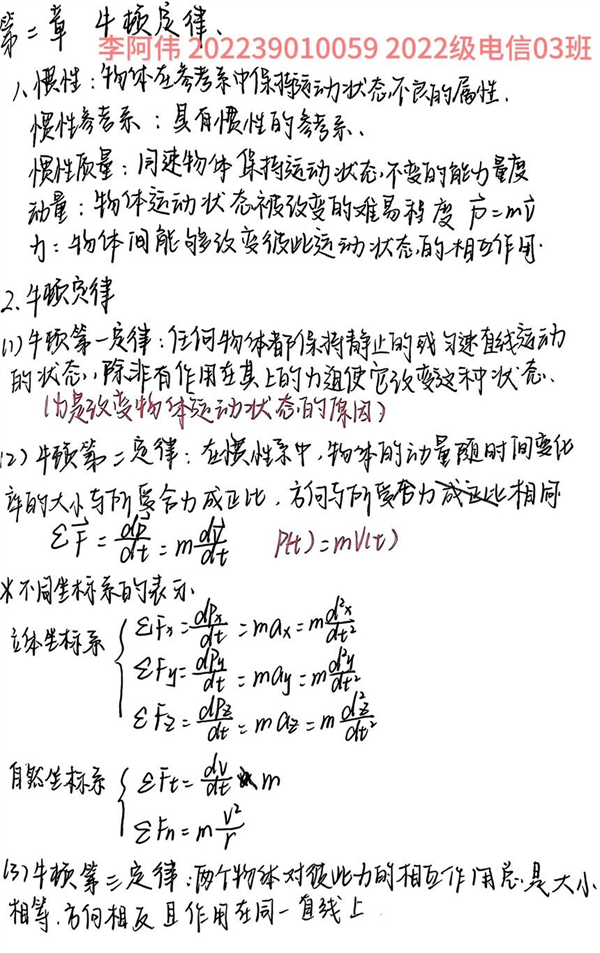 第二章 牛顿定律.
李阿伟 202239010059 2022级电信03班
1、惯性：物体在参考系中保持运动状态不良的属性.
惯性参考系：具有惯性的参考系.
惯性质量：同速物体保持运动状态,不变的能力量度
动量：物体运动状态被改变的难易程度 p⃗=mv⃗
力：物体间能够改变彼此运动状态的相互作用.
2.牛顿定律
(1)牛顿第一定律：任何物体都保持静止的或匀速直线运动
的状态,除非有作用在其上的力迫使它改变这种状态.
(力是改变物体运动状态的原因)
(2)牛顿第二定律：在惯性系中,物体的动量随时间变化
率的大小与所受合力成正比.方向与所受合力成正比相同
ΣF⃗=dp⃗/dt=m dv⃗/dt P(t)=mV(t)
※不同坐标系的表示.
立体坐标系
ΣFx=dPx/dt=max=m d²x/dt²
ΣFy=dPy/dt=may=m d²y/dt²
ΣFz=dPz/dt=maz=m d²z/dt²
自然坐标系
ΣFt=dv/dt m
ΣFn=m v²/r
(3)牛顿第三定律：两个物体对彼此力的相互作用总是大小
相等.方向相反且作用在同一直线上